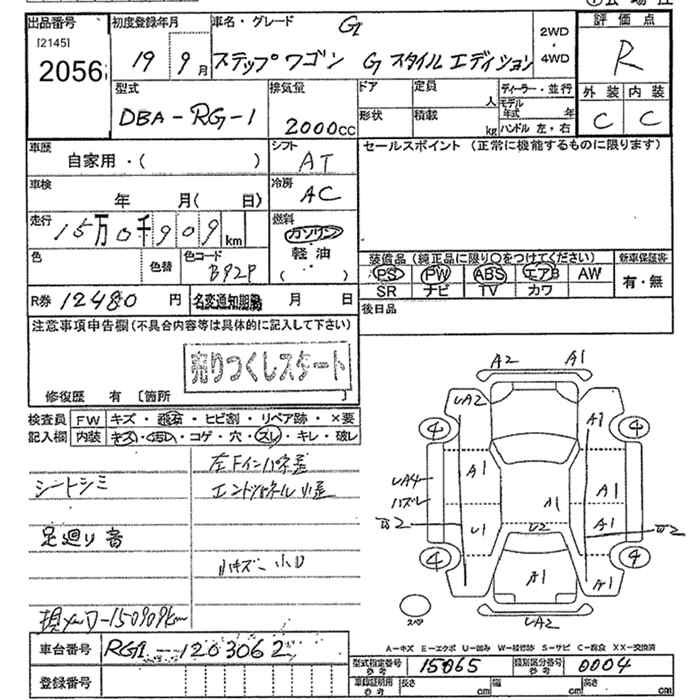 出品番号
[2145]
2056
初度登録年月
19 9月
車名・グレード
G
ステップワゴン G スタイルエディション
2WD
・
4WD
評価点
R
外装 内装
C C
型式
DBA-RG-1
排気量
2000cc
ドア
形状
定員
人
積載
kg
ディーラー・並行
モデル年式 年
ハンドル 左・右
車歴
自家用・( )
シフト
AT
セールスポイント (正常に機能するものに限ります)
車検
年 月( 日)
冷房
AC
走行
15万0千909km
燃料
ガソリン
軽油
( )
色
色替
色コード
B92P
装備品 (純正品に限り○をつけてください)
PS PW ABS エアB AW
SR ナビ TV カワ
新車保証書
有・無
R券 12480円
名変通知期限 月 日
後日品
注意事項申告欄(不具合内容等は具体的に記入して下さい)
売りつくしスタート
修復歴 有 〔箇所 〕
検査員 FW キズ・飛石・ヒビ割・リペア跡・×要
記入欄 内装 キズ・コゲ・穴・スレ・キレ・破レ
左Fインパネ差
シートシミ
エンドパネル小歪
足廻り音
現メーター150909km
車台番号 RG1-1203062
登録番号
A2 A1
UA2
4 4
A1
A1
UA4
A1
A1
A1
U1
U2
A1
4 4
A1
A1
UA2
スペア
A-キズ E-エクボ U-凹み W-補修跡 S-サビ C-腐食 XX-交換済
型式指定番号 参考 15065
類別区分番号 参考 0004
車庫証明用 参考 長さ cm 幅 cm 高さ cm